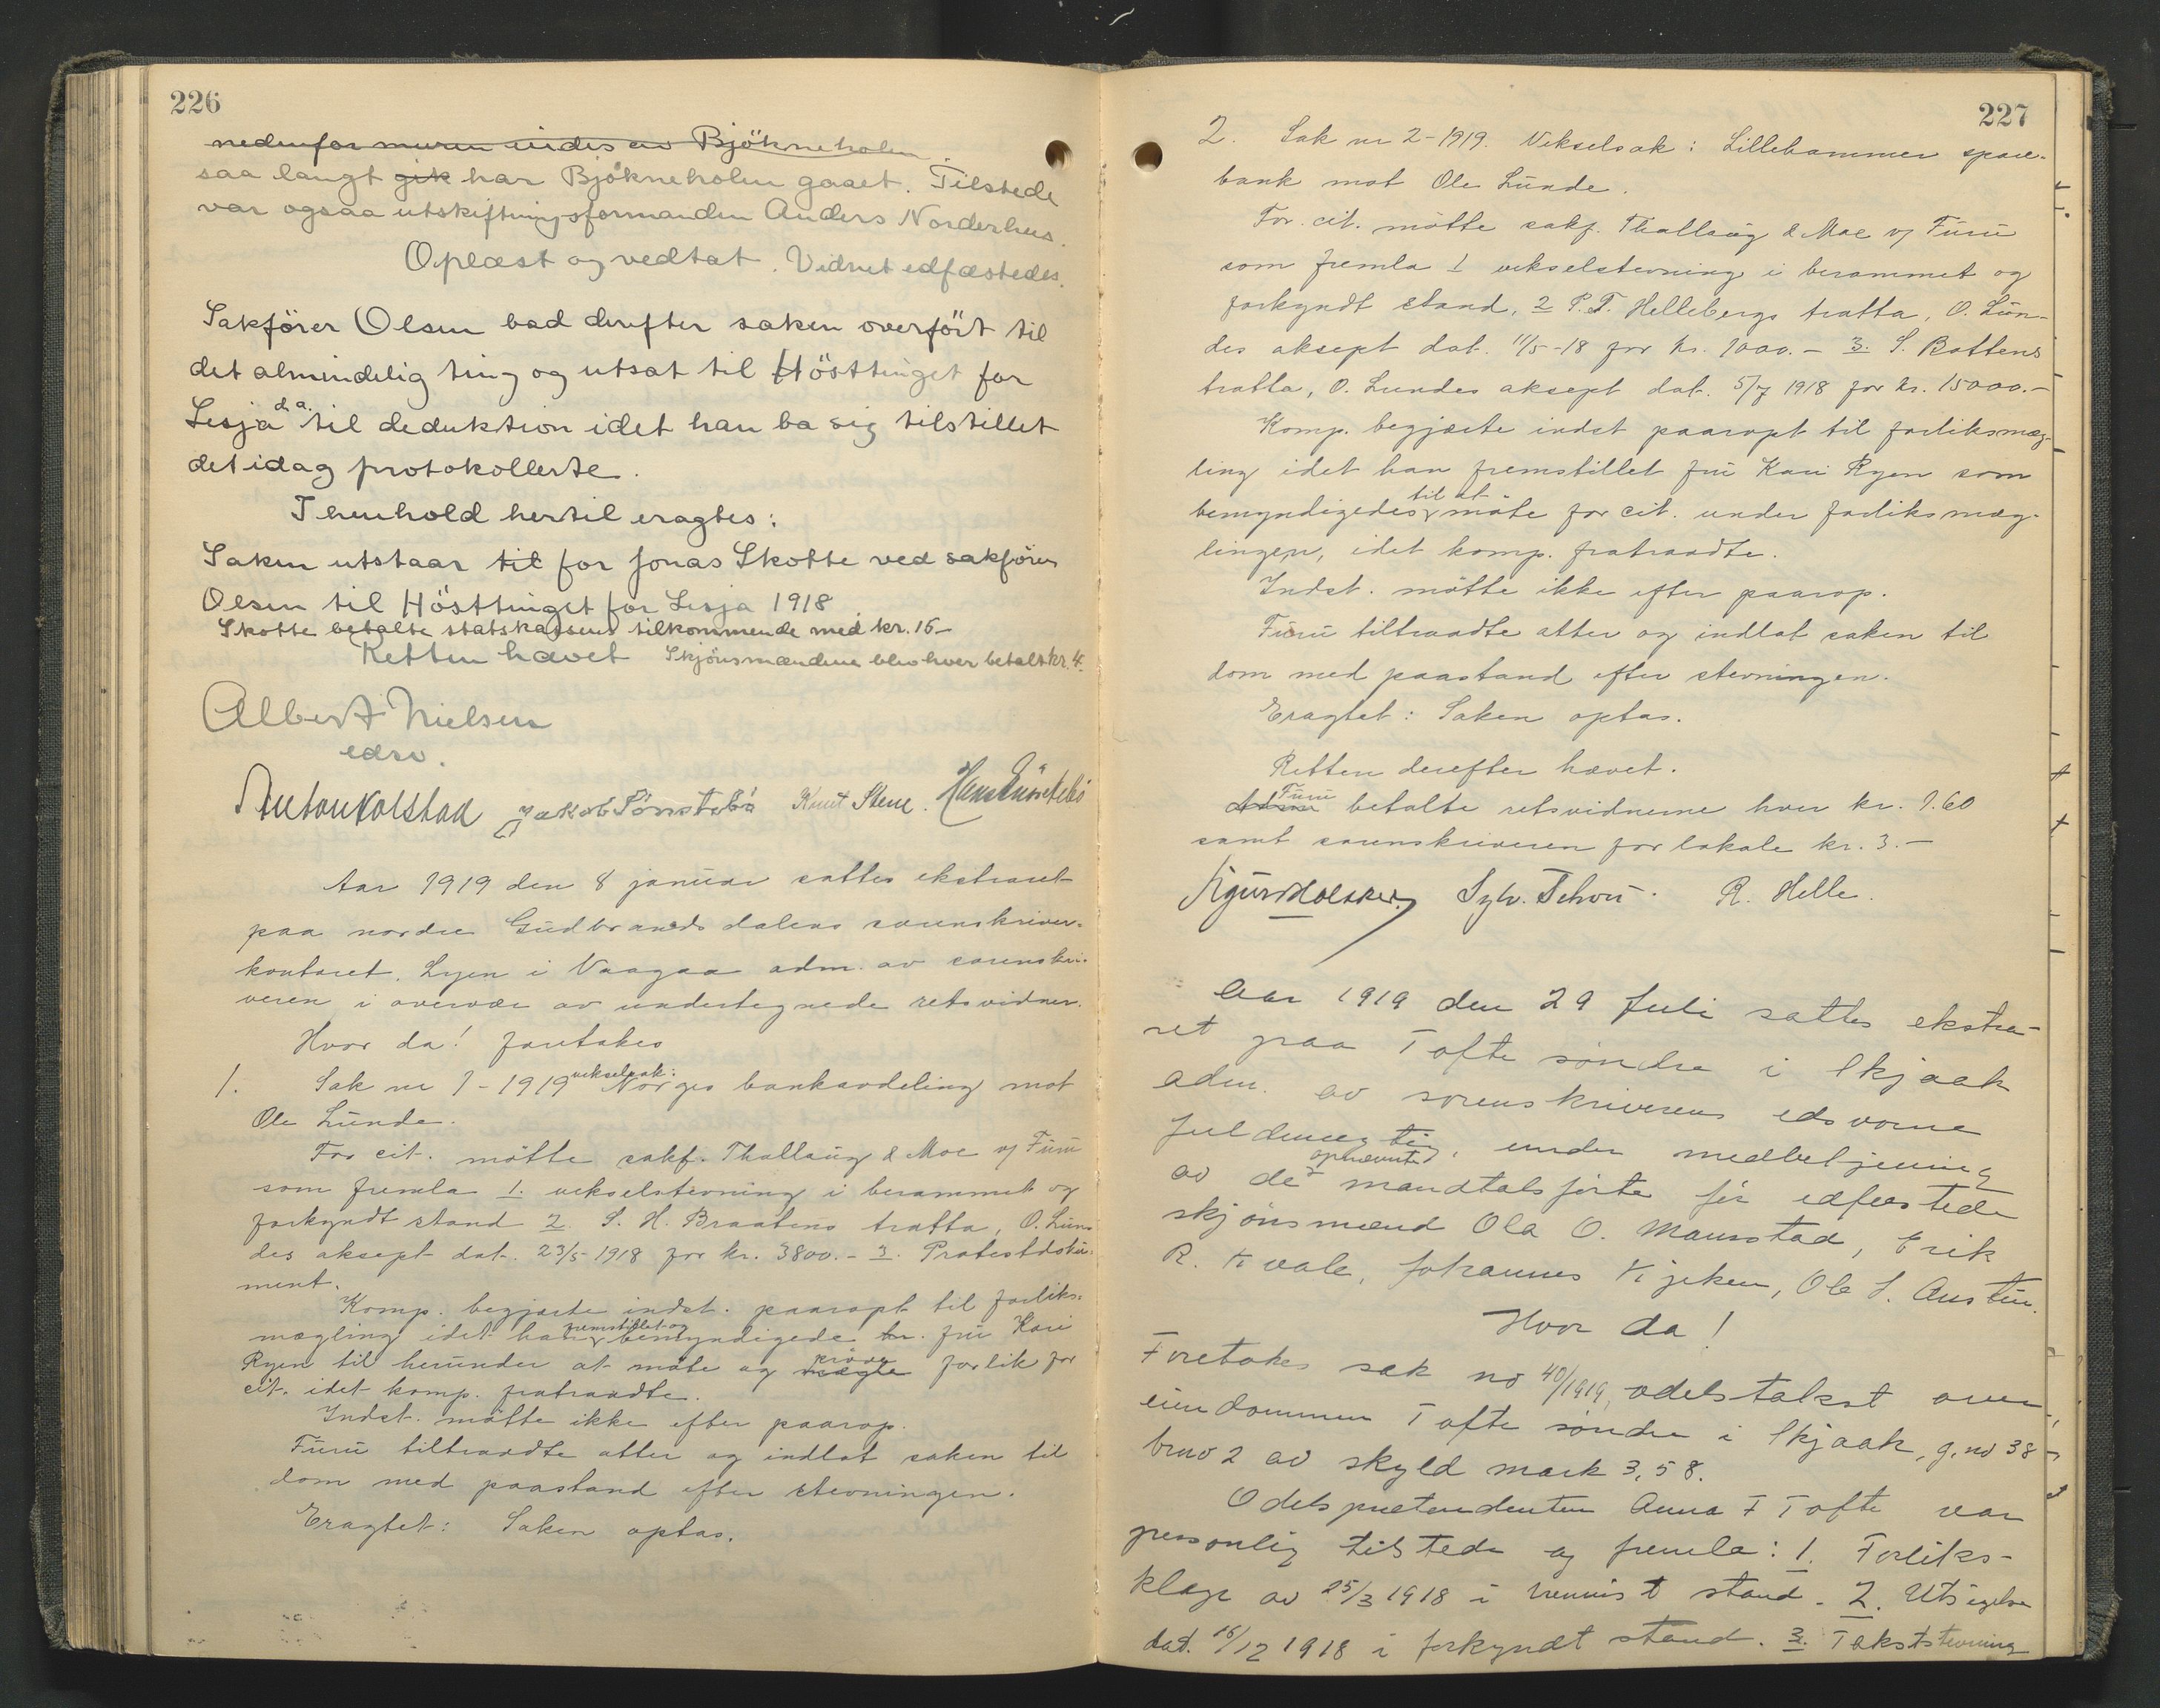 226
nedenfor muren indes av Bjökneholen
saa langt gik har Bjökneholen gaaet. Tilstede
var ogsaa utskiftningsformanden Anders Norderhus.
Oplæst og vedtat. Vidnet edfæstedes.
Sakförer Olsen bad derefter saken overfört til
det almindelig ting og utsat til Hösttinget for
Lesja d.a. til deduktion idet han ba sig tilstillet
det idag protokollerte.
I henhold hertil eragtes:
Saken utstaar til for Jonas Skotte ved sakförer
Olsen til Hösttinget for Lesja 1918.
Skotte betalte statskassens tilkommende med kr. 16-
Retten hævet Skjönsmændene blev hver betalt kr. 4.
Albert Nielsen
edsv.
Anton Kolstad Jakob Sönstebö Knut Stene.
Aar 1919 den 8 januar sattes ekstraret
paa nordre Gudbrandsdalens sorenskriver-
kontoret, Lyen i Vaagaa adm. av sorenskri-
veren i overvær av undertegnede retsvidner.
Hvor da! foretokes
1. Sak nr 1-1919 vekselsak: Norges bankavdeling mot
Ole Lunde.
For cit. mötte sakf. Thallaug & Moe v/ Furu
som fremla 1. vekselstevning i berammet og
forkyndt stand 2. S. H. Braatens tratta, O. Lun-
des aksept dat. 23/5-1918 for kr. 3800.- 3. Protestdoku-
ment.
Komp. begjærte indst. paaropt til forliks-
mægling idet han fremstillet og bemyndigede fru Kari
Ryen til herunder at möte og mægle pröve forlik for
cit. idet komp. fratraadte.
Indst. mötte ikke efter paarop.
Furu tiltraadte atter og indlot saken til
dom med paastand efter stevningen.
Eragtet: Saken optas.
227
2. Sak nr 2-1919. Vekselsak: Lillehammer spare-
bank mot Ole Lunde.
For cit. mötte sakf. Thallaug & Moe v/ Furu
som fremla 1 vekselstevning i berammet og
forkyndt stand, 2 P. T. Hellebergs tratta, O. Lun-
des aksept dat. 11/5-18 for kr. 1000.- 3. S. Bottens
tratta, O. Lundes aksept dat. 5/7 1918 for kr. 15000.-
Komp. begjærte indst paaropt til forliksmæg-
ling idet han fremstillet fru Kari Ryen som
bemyndigedes til at möte for cit. under forliksmæg-
lingen, idet komp. fratraadte.
Indst. mötte ikke efter paarop.
Furu tiltraadte atter og indlot saken til
dom med paastand efter stevningen.
Eragtet: Saken optas.
Retten derefter hævet.
Furu betalte retsvidnerne hver kr. 1.60
samt sorenskriveren for lokale kr. 3.-
Sylv. Schou. R. Helle.
Aar 1919 den 29 Juli sattes ekstra-
ret paa Tofte söndre i Skjaak
adm. av sorenskriverens edsvorne
fuldmægtig, under medbetjening
av de opnævnte mandtalsförte för edfæstede
skjönsmænd Ola O. Maurstad, Erik
R. Kvale, Johannes Kjeken, Ole S. Austin.
Hvor da!
Foretokes sak no 40/1919, odelstakst over
eiendommen Tofte söndre i Skjaak, g.no 38
brno 2 av skyld mark 3,58.
Odelsprætendenten Anna F Tofte var
personlig tilstede og fremla: 1. Forliks-
klage av 25/3 1918 i henvist stand. 2. Utsigelse
dat. 16/12 1918 i forkyndt stand. 3. Takststevning